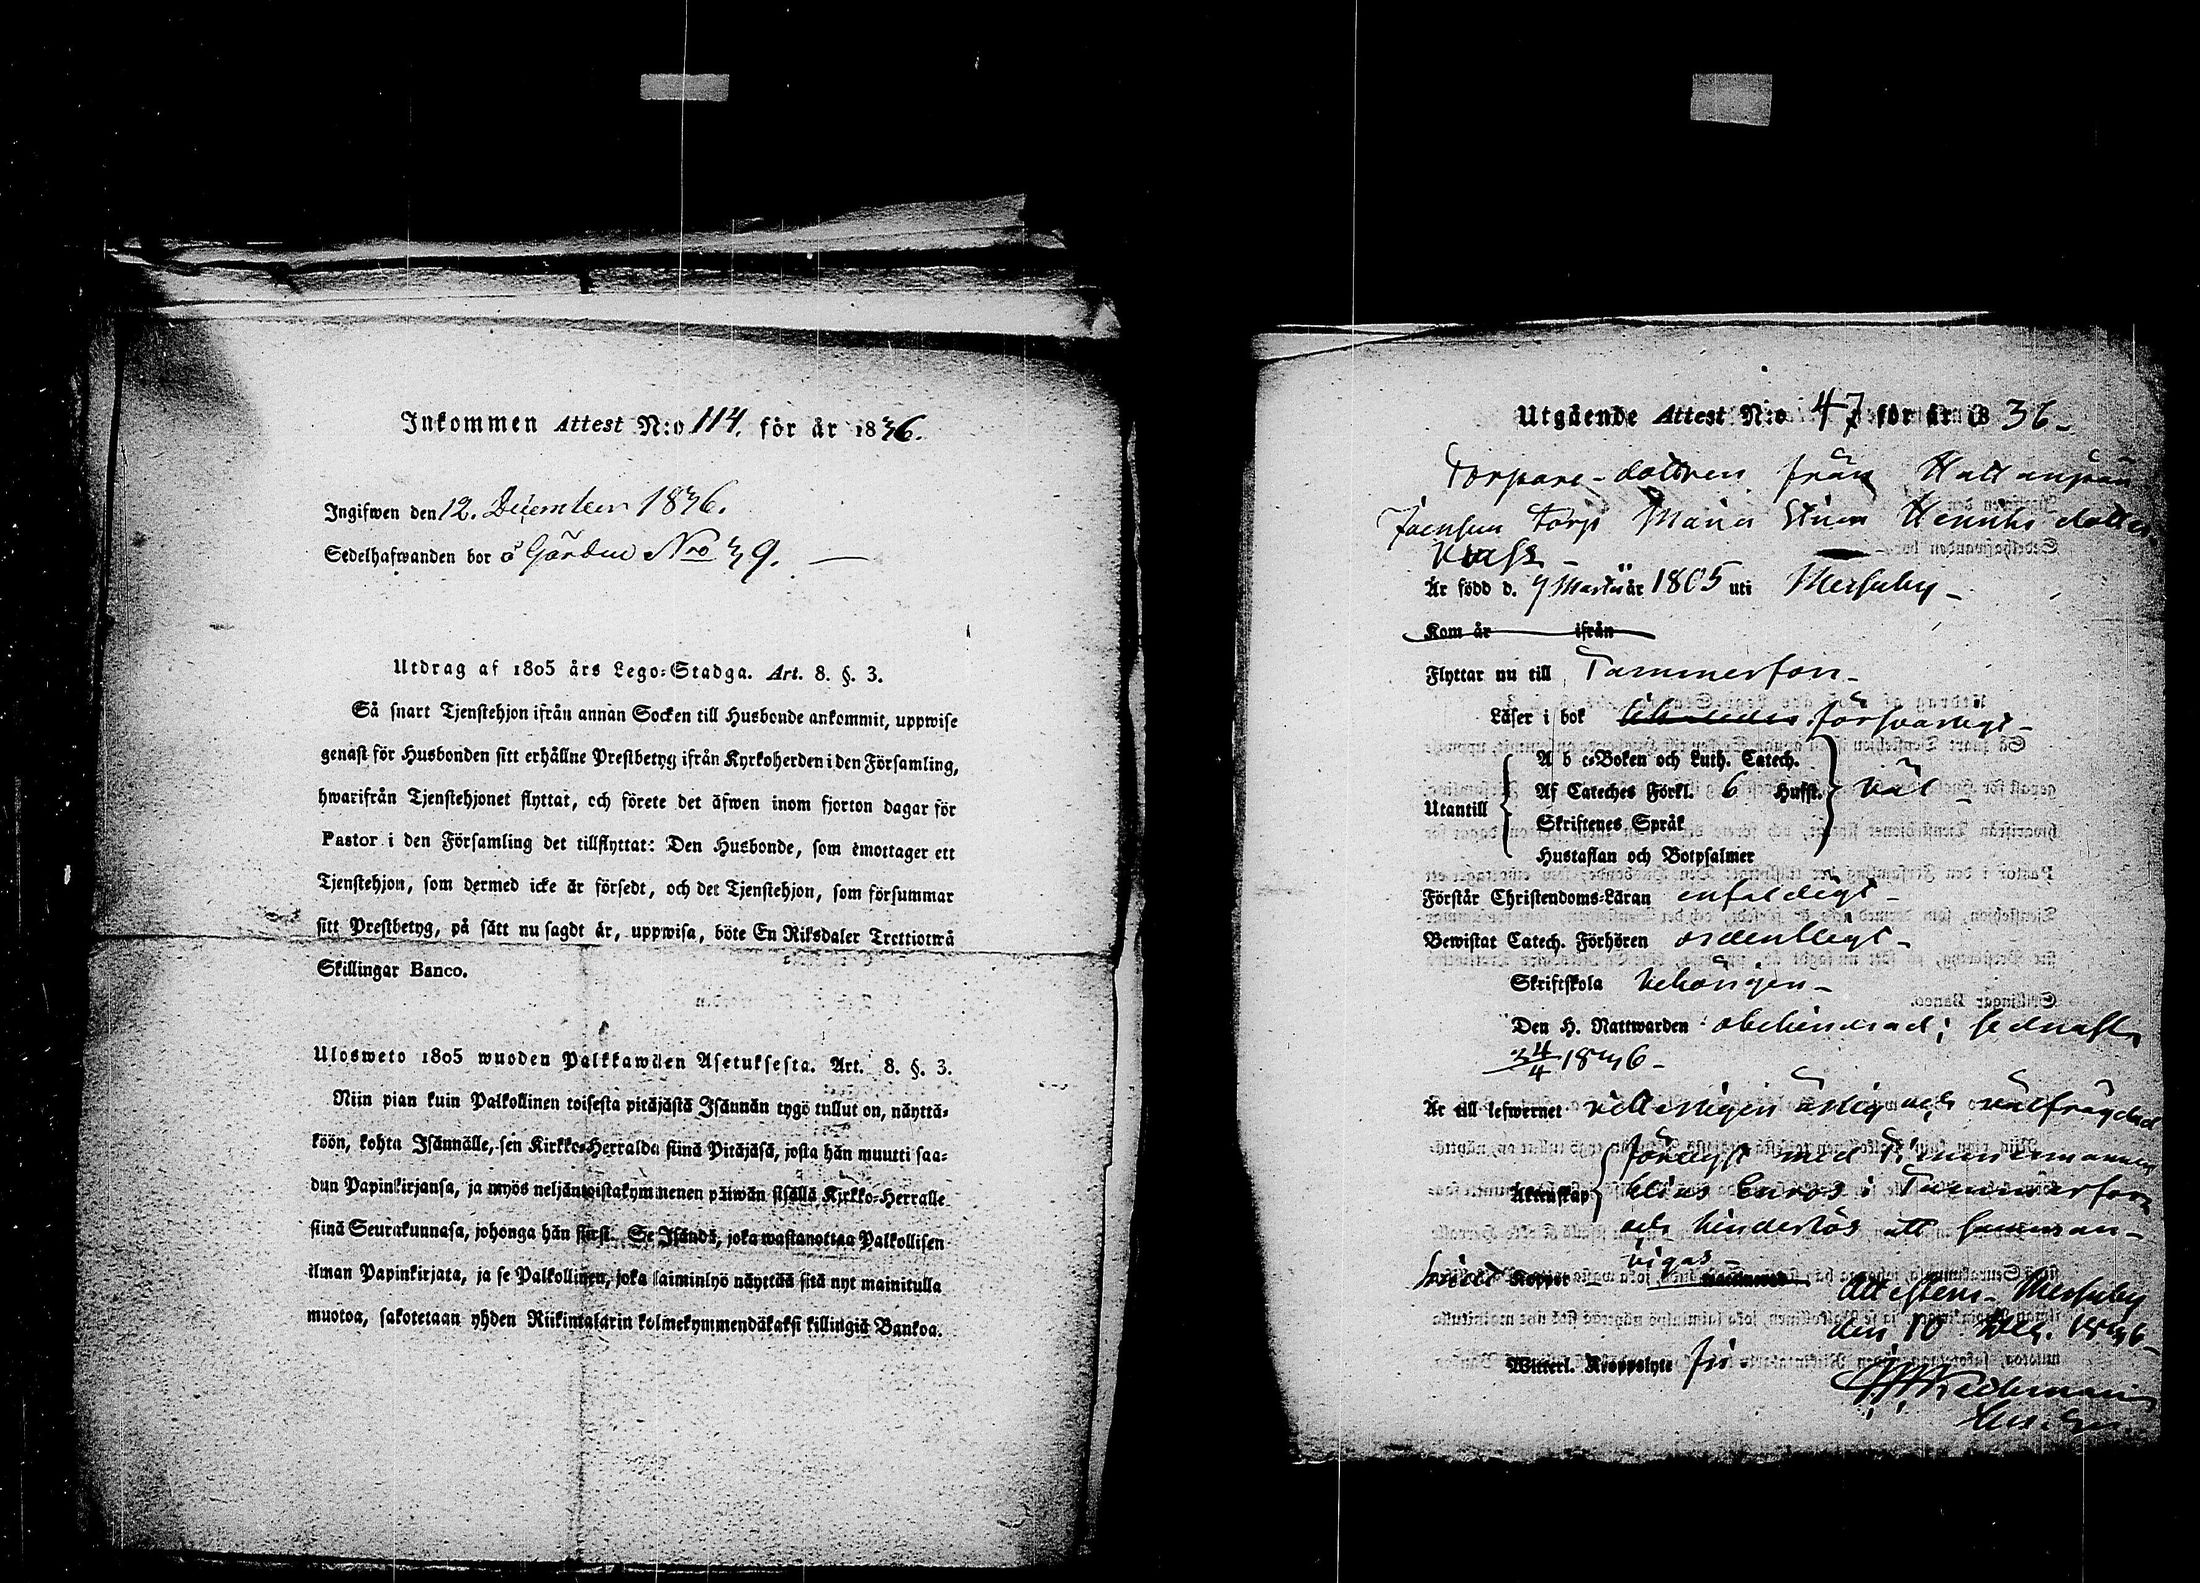 Inkommen Attest N:o 114. för år 1836.
Ingifwen den 12. December 1836.
Sedelhafwanden bor å Gården Nro 39.
Utdrag af 1805 års Lego-Stadga. Art. 8. §. 3.
Så snart Tjenstehjon ifrån annan Socken till Husbonde ankommit, uppwise
genast för Husbonden sitt erhållne Prestbetyg ifrån Kyrkoherden i den Församling,
hwarifrån Tjenstehjonet flyttat, och förete det äfwen inom fjorton dagar för
Pastor i den Församling det tillflyttat: Den Husbonde, som emottager ett
Tjenstehjon, som dermed icke är försedt, och det Tjenstehjon, som försummar
sitt Prestbetyg, på sätt nu sagdt är, uppwisa, böte En Riksdaler Trettiotwå
Skillingar Banco.
Ulosweto 1805 wuoden Palkkawäen Asetuksesta. Art. 8. §. 3.
Niin pian kuin Palkollinen toisesta pitäjästä Isännän tygö tullut on, näyttä-
köön, kohta Isännälle, sen Kirkko-Herralda siinä Pitäjäsä, josta hän muutti saa-
dun Papinkirjansa, ja myös neljäntoistakymmenen päiwän sisällä Kirkko-Herralle
siinä Seurakunnasa, johonga hän siirsi. Se Isändä, joka wastanottaa Palkollisen
ilman Papinkirjata, ja se Palkollinen, joka laiminlyö näyttää sitä nyt mainitulla
muotoa, sakotetaan yhden Riikintalarin kolmekymmendäkaksi killingiä Bankoa.
Utgående Attest N:o 47 för år 1836
Torpare-dottren från Hattanpää
torp Maria Stina Henriks dotter
Är född d. 9 Martii år 1805 uti Messuby
Kom år ifrån
Flyttar nu till Tammerfors
Läser i bok försvarligt
A b c-Boken och Luth. Catech.
Utantill Af Cateches Förkl. 6 Hufst. väl
Skriftenes Språk
Hustaflan och Botpsalmer
Förstår Christendoms-Läran enfaldigt
Bewistat Catech. Förhören ordentligt
Skriftskola behörigen
Den H. Nattwarden obehindrad; sednast
1836
Är till lefwernet ärlig och välfrägdad
Äktenskap förlyst med Timmermannen
Elias Enros i Tammerfors
och hinderlös att samman-
vigas
Koppor
Attesterar Messuby
den 10 Dec. 1836
Witterl. Kroppslyte fri